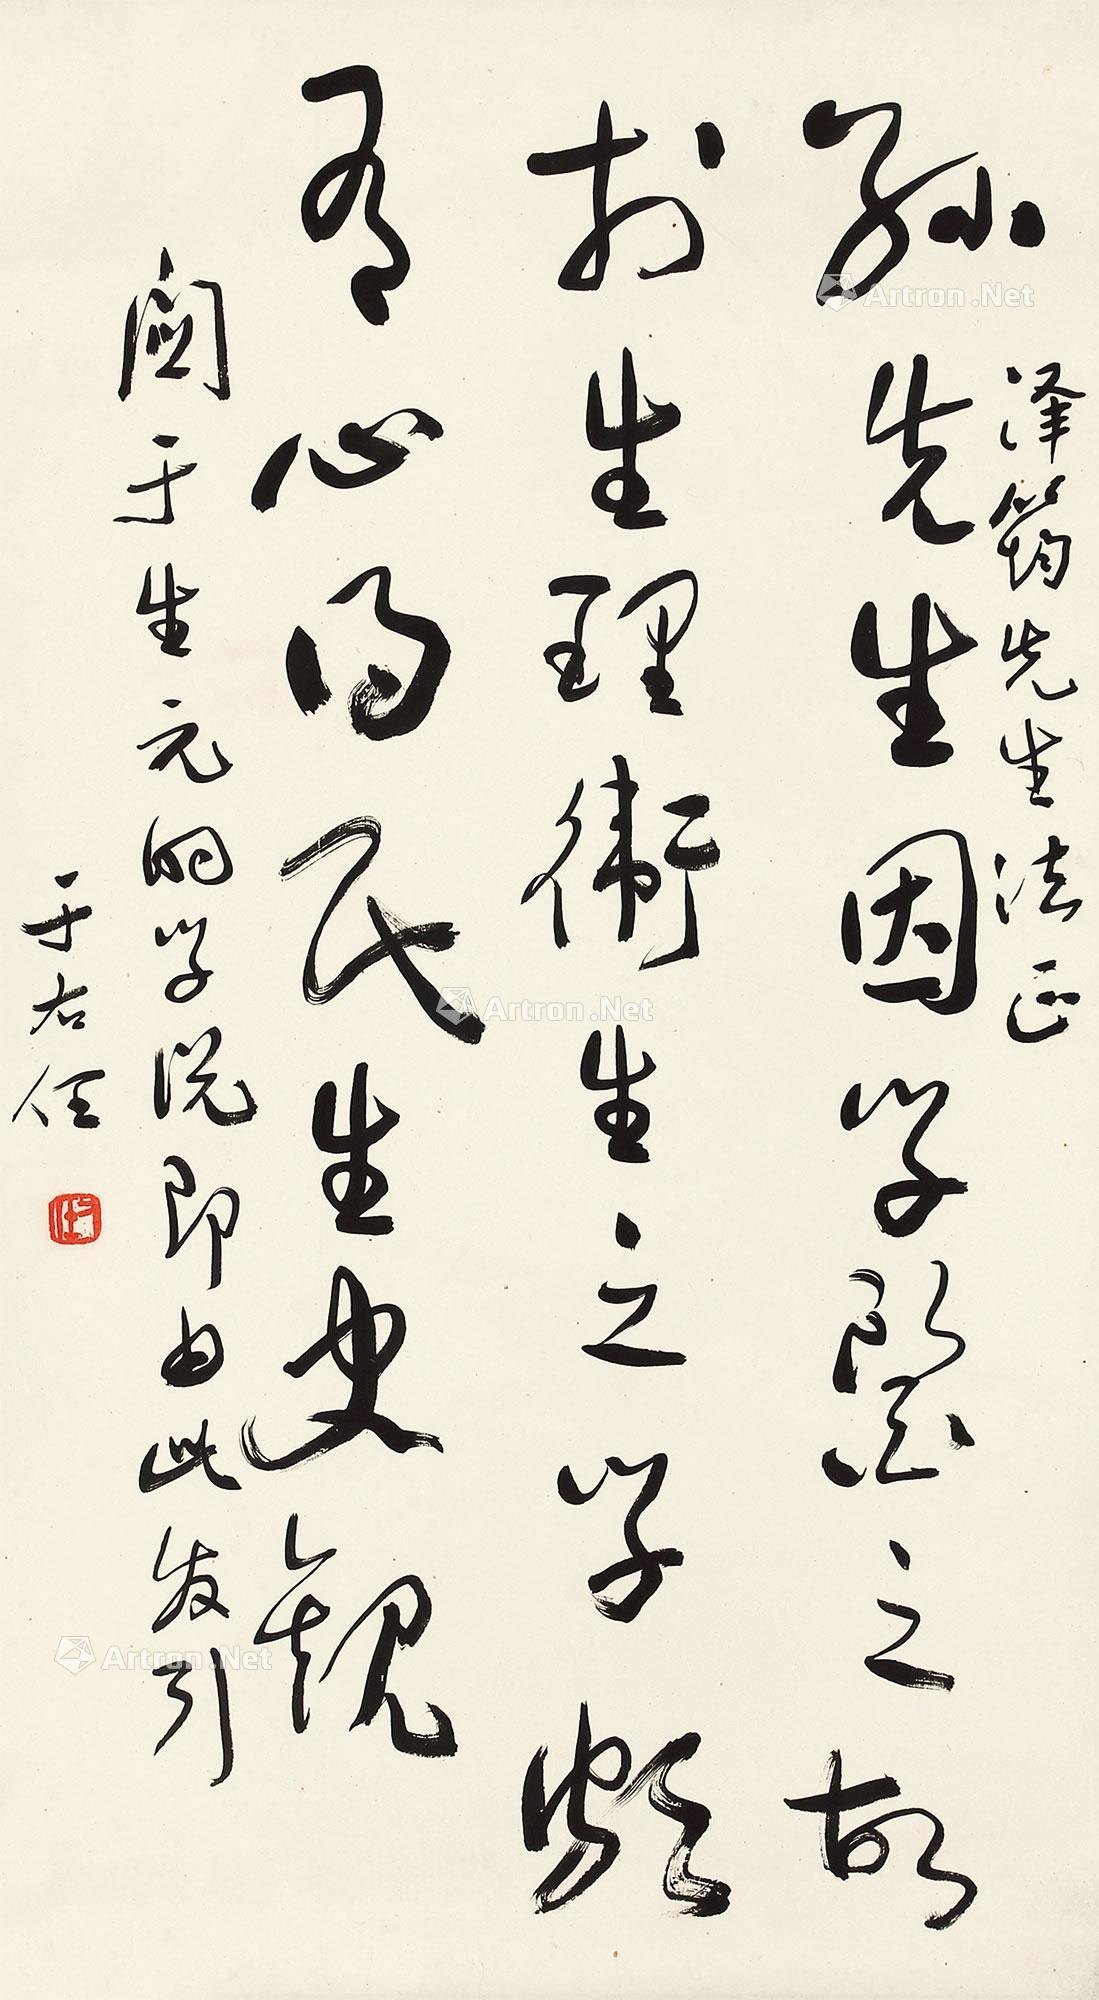 孙先生因学医之故
泽筠先生法正
于生理卫生之学颇
有心得民生史观
关于生元的学说即由此发引
于右任
右任
Artron.Net
Artron.Net
Artron.Net